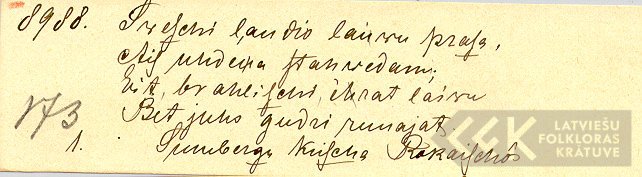 8988. Sweschi ļaudis laiwu prasa,
Aiz uhdeņa stahwedami;
Eit, brahlischi, ihrat laiwu
Bet juhs gudri runajat.
173
1. Sumberga Krischa Rokaischôs
LATVIEŠU
FOLKLORAS
KRĀTUVE